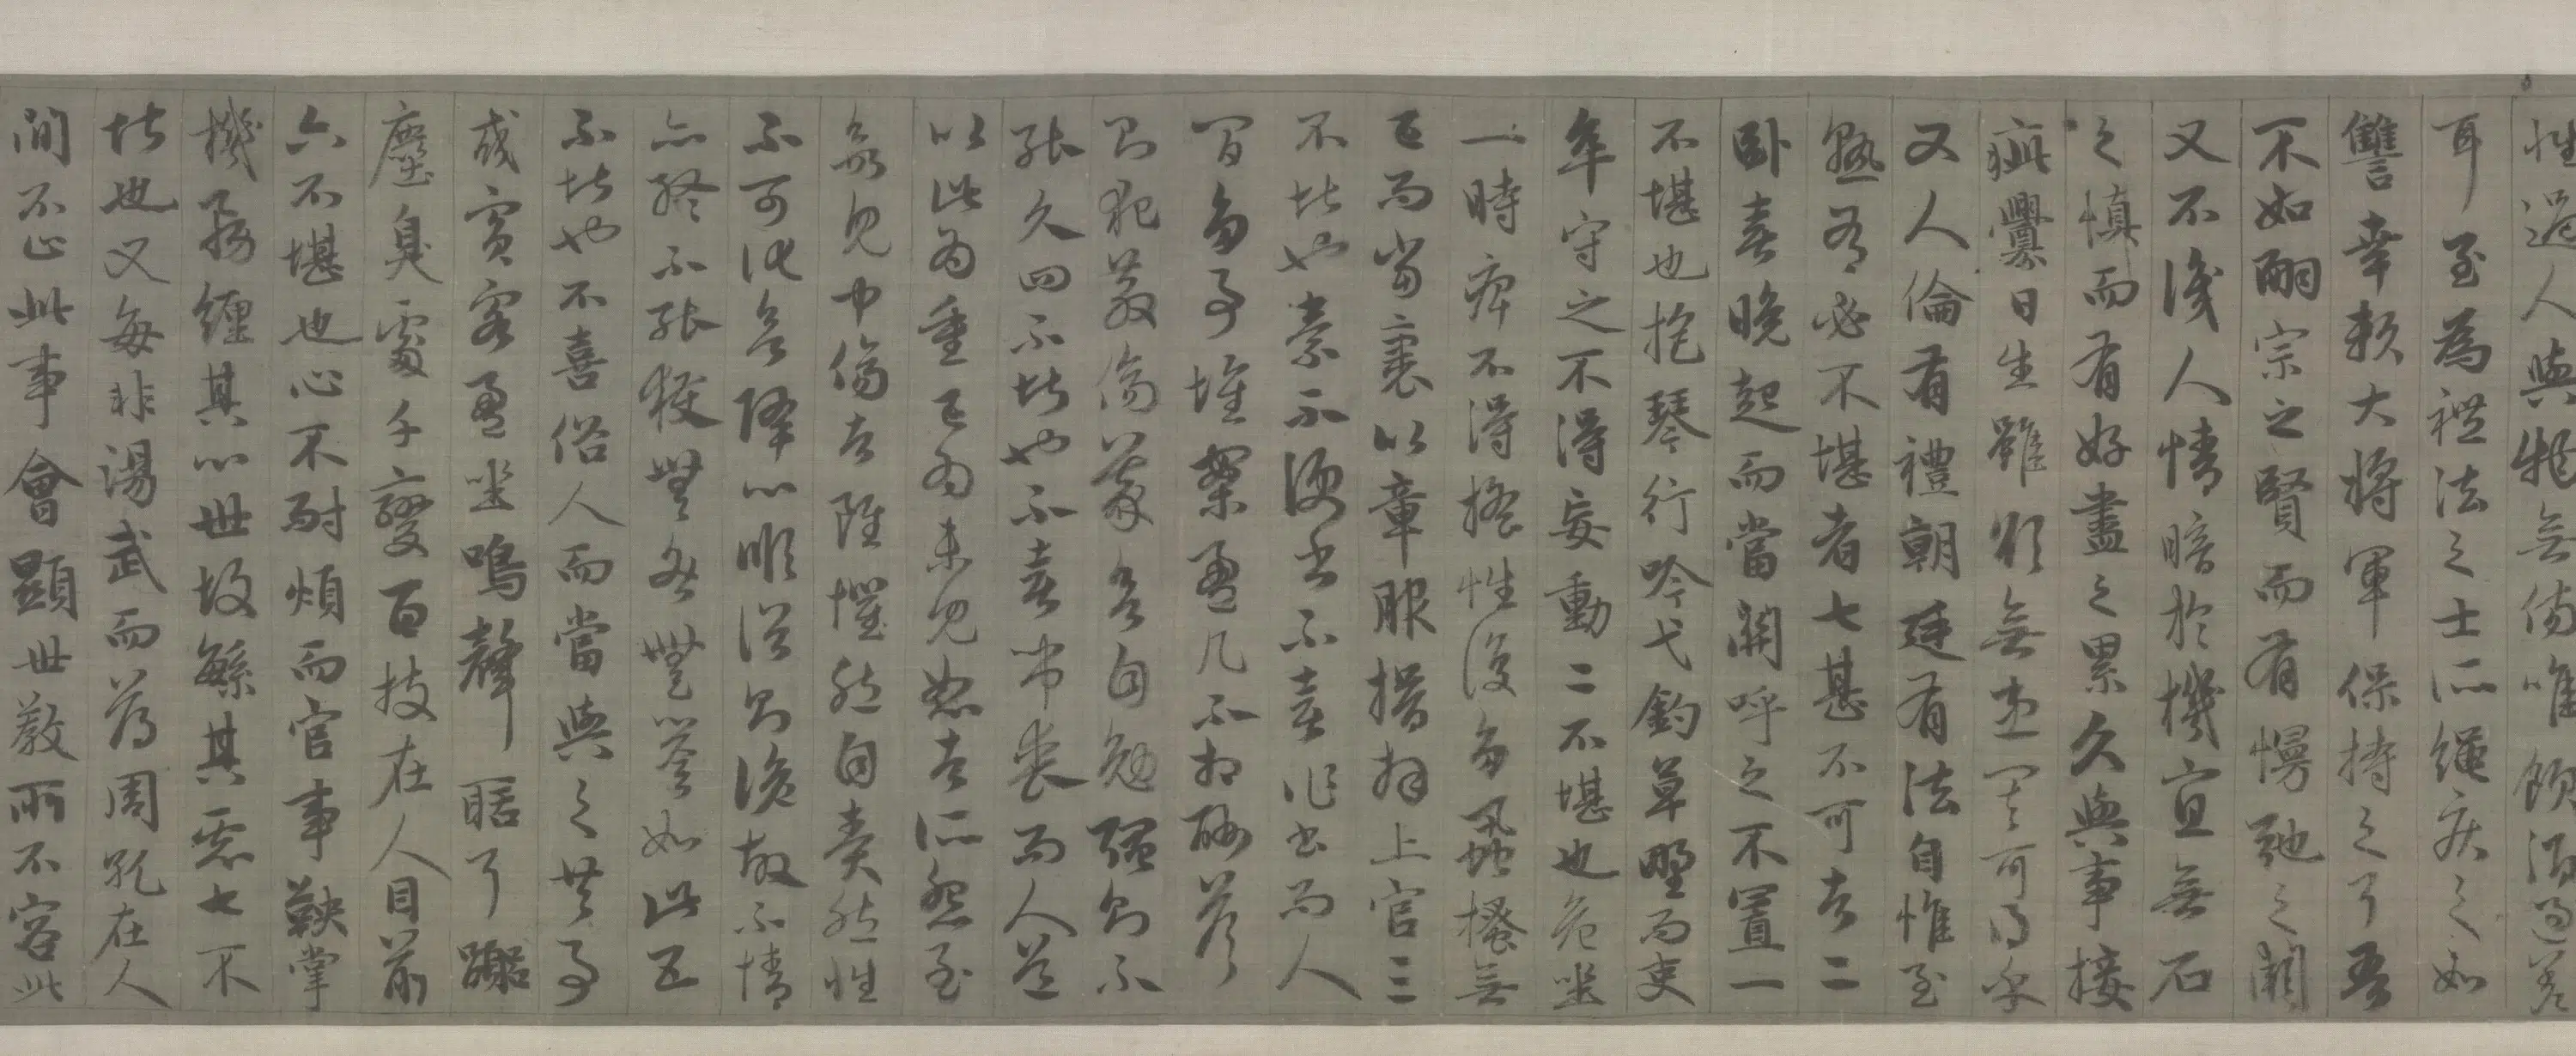 性過人與物無傷唯飲酒過差
耳至為禮法之士所繩疾之如
讐幸賴大將軍保持之耳吾
不如嗣宗之賢而有慢弛之闕
又不識人情暗於機宜無石
之慎而有好盡之累久與事接
疵釁日生雖欲無患其可得乎
又人倫有禮朝廷有法自惟至
熟有必不堪者七甚不可者二
卧喜晚起而當關呼之不置一
不堪也抱琴行吟弋釣草野而吏
卒守之不得妄動二不堪也危坐
一時痺不得搖性復多虱把搔無
已而當裹以章服揖拜上官三
不堪也素不便書不喜作書而人
間多事堆案盈几不相酬答
則犯教傷義欲自勉強則不
能久四不堪也不喜弔喪而人道
以此為重已為未見恕者所怨至
欲見中傷者雖懼然自責然性
不可化欲降心順俗則詭故不情
亦終不能獲無咎無譽如此五
不堪也不喜俗人而當與之共事
或賓客盈坐鳴聲聒耳囂
塵臭處千變百技在人目前
六不堪也心不耐煩而官事鞅掌
機務纏其心世故繁其慮七不
堪也又每非湯武而薄周孔在人
間不止此事會顯世教所不容此